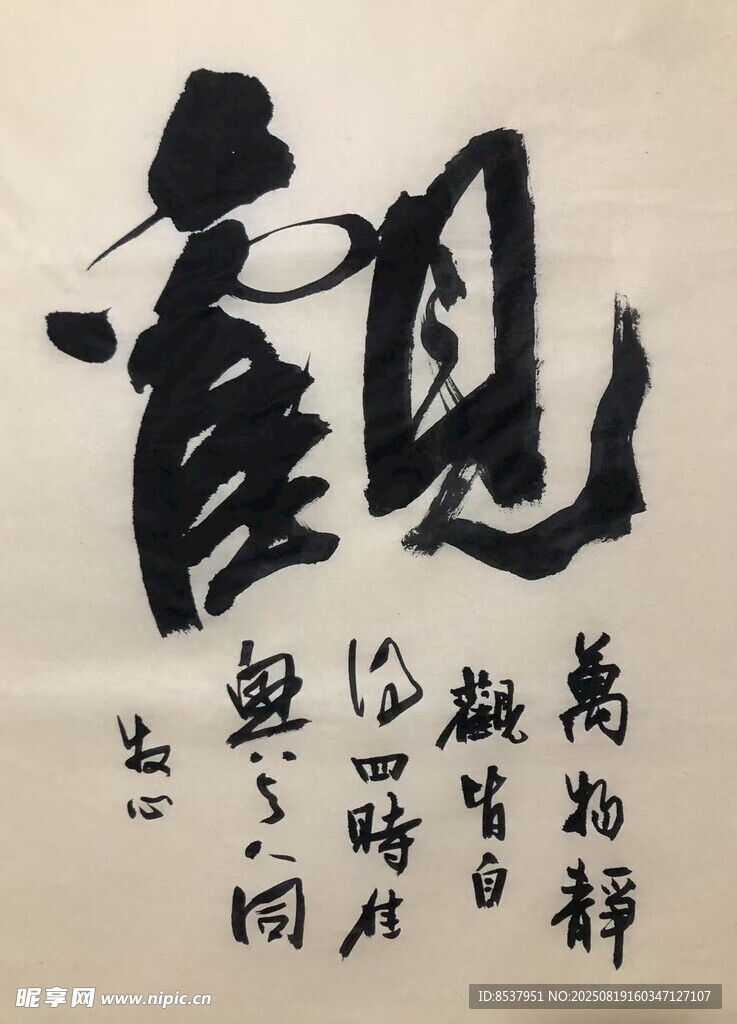 觀
萬物靜
觀皆自
得四時佳
興与人同
牧心
昵享网 www.nipic.cn
ID:8537951 NO:20250819160347127107